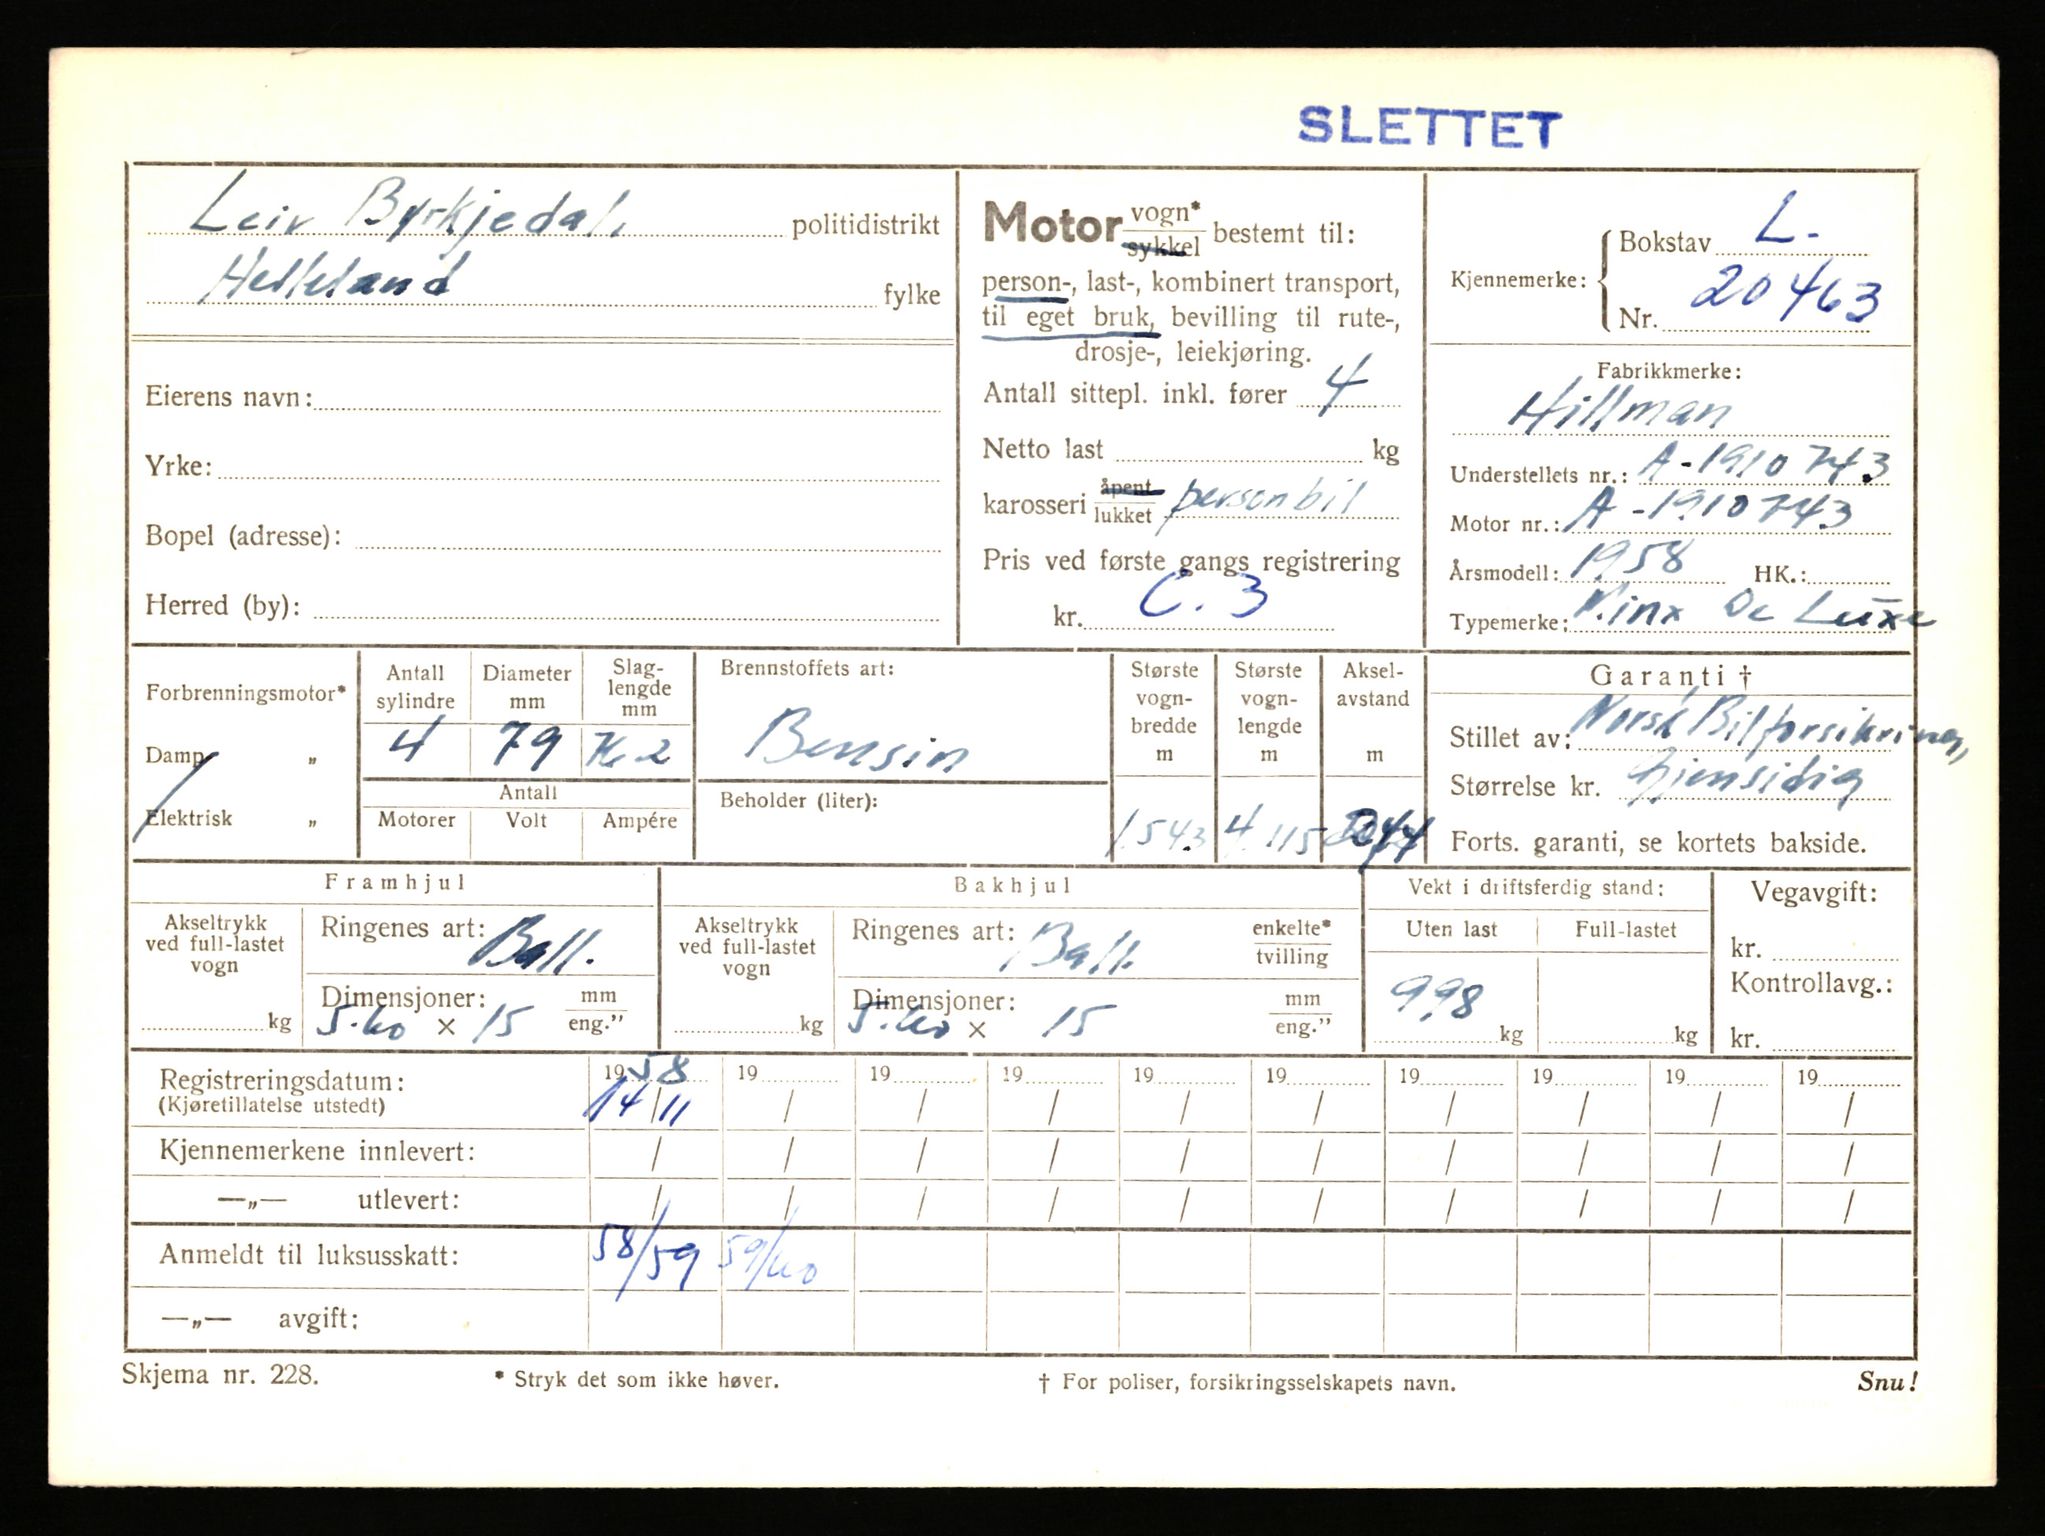 SLETTET
Leiv Byrkjedal, politidistrikt
Helleland fylke
Eierens navn:
Yrke:
Bopel (adresse):
Herred (by):
Motor vogn* sykkel bestemt til:
person-, last-, kombinert transport,
til eget bruk, bevilling til rute-,
drosje-, leiekjøring.
Antall sittepl. inkl. fører 4
Netto last kg
karosseri åpent lukket personbil
Pris ved første gangs registrering
kr. C. 3
Kjennemerke: Bokstav L.
Nr. 20463
Fabrikkmerke:
Hillman
Understellets nr.: A-1910743
Motor nr.: A-1910743
Årsmodell: 1958 HK.:
Typemerke: Minx De Luxe
Forbrenningsmotor*
Damp „
Elektrisk „
Antall sylindre 4
Diameter mm 79
Slag-lengde mm 76.2
Antall
Motorer Volt Ampére
Brennstoffets art:
Bensin
Beholder (liter):
Største vogn-bredde m 1.543
Største vogn-lengde m 4.115
Aksel-avstand m
Garanti †
Stillet av: Norsk Bilforsikring,
Størrelse kr. Gjensidig
Forts. garanti, se kortets bakside.
Framhjul
Akseltrykk ved full-lastet vogn kg
Ringenes art: Ball.
Dimensjoner: mm
5.60 × 15 eng.”
Bakhjul
Akseltrykk ved full-lastet vogn kg
Ringenes art: Ball. enkelte* tvilling
Dimensjoner: mm
5.60 × 15 eng.”
Vekt i driftsferdig stand:
Uten last Full-lastet
998 kg kg
Vegavgift:
kr.
Kontrollavg.:
kr.
Registreringsdatum: 1958 19 19 19 19 19 19 19 19 19
(Kjøretillatelse utstedt) 14/11 / / / / / / / / /
Kjennemerkene innlevert: / / / / / / / / / /
—„— utlevert: / / / / / / / / / /
Anmeldt til luksusskatt: 58/59 59/60
—„— avgift:
Skjema nr. 228. * Stryk det som ikke høver. † For poliser, forsikringsselskapets navn. Snu!